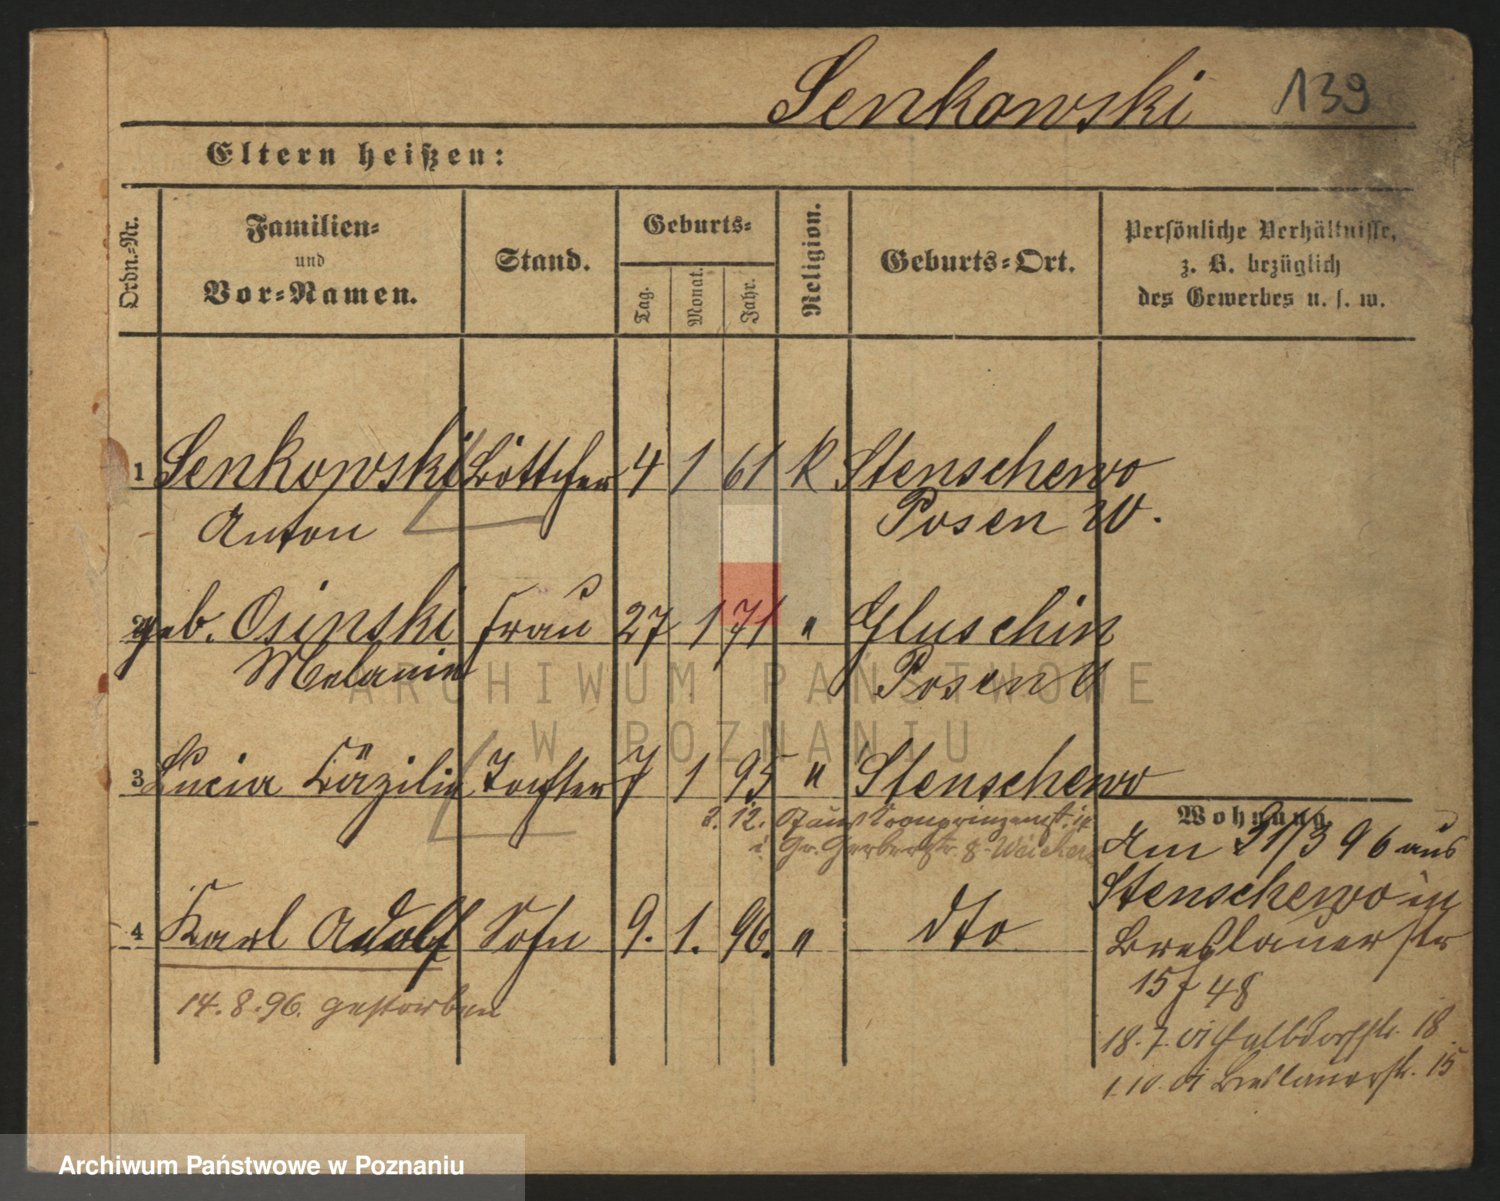 Senkowski 139
Eltern heißen:
Ordn.-Nr.
Familien-
und
Vor-Namen.
Stand.
Geburts-
Tag.
Monat.
Jahr.
Religion.
Geburts-Ort.
Persönliche Verhältnisse,
z. B. bezüglich
des Gewerbes u. s. w.
1 Senkowski Böttcher 4 1 61 k Stenschewo
Anton Posen W.
2 geb. Osinski Frau 27 1 71 " Gluschin
Melanie Posen O
ARCHIWUM PAŃSTWOWE
W POZNANIU
3 Lucia Cäzilie Tochter 7 1 95 " Stenschewo
Wohnung.
3. 12.
Gr. Gerberstr. 8
Am 31/3 96 aus
Stenschewo in
Breslauerstr
15 48
4 Karl Adolf Sohn 9. 1. 96. " dto
14. 8. 96. gestorben
18. 7. 01 Halbdorfstr. 18
1. 10. 01 Breslauerstr. 15
Archiwum Państwowe w Poznaniu